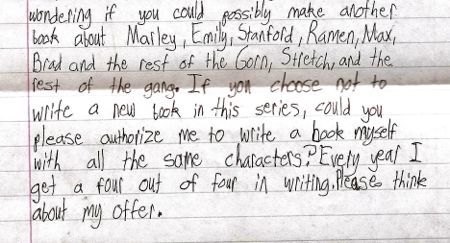 wondering if you could possibly make another
book about Marley, Emily, Stanford, Ramen, Max,
Brad and the rest of the Gorn, Stretch, and the
rest of the gang. If you choose not to
write a new book in this series, could you
please authorize me to write a book myself
with all the same characters? Every year I
get a four out of four in writing. Please think
about my offer.